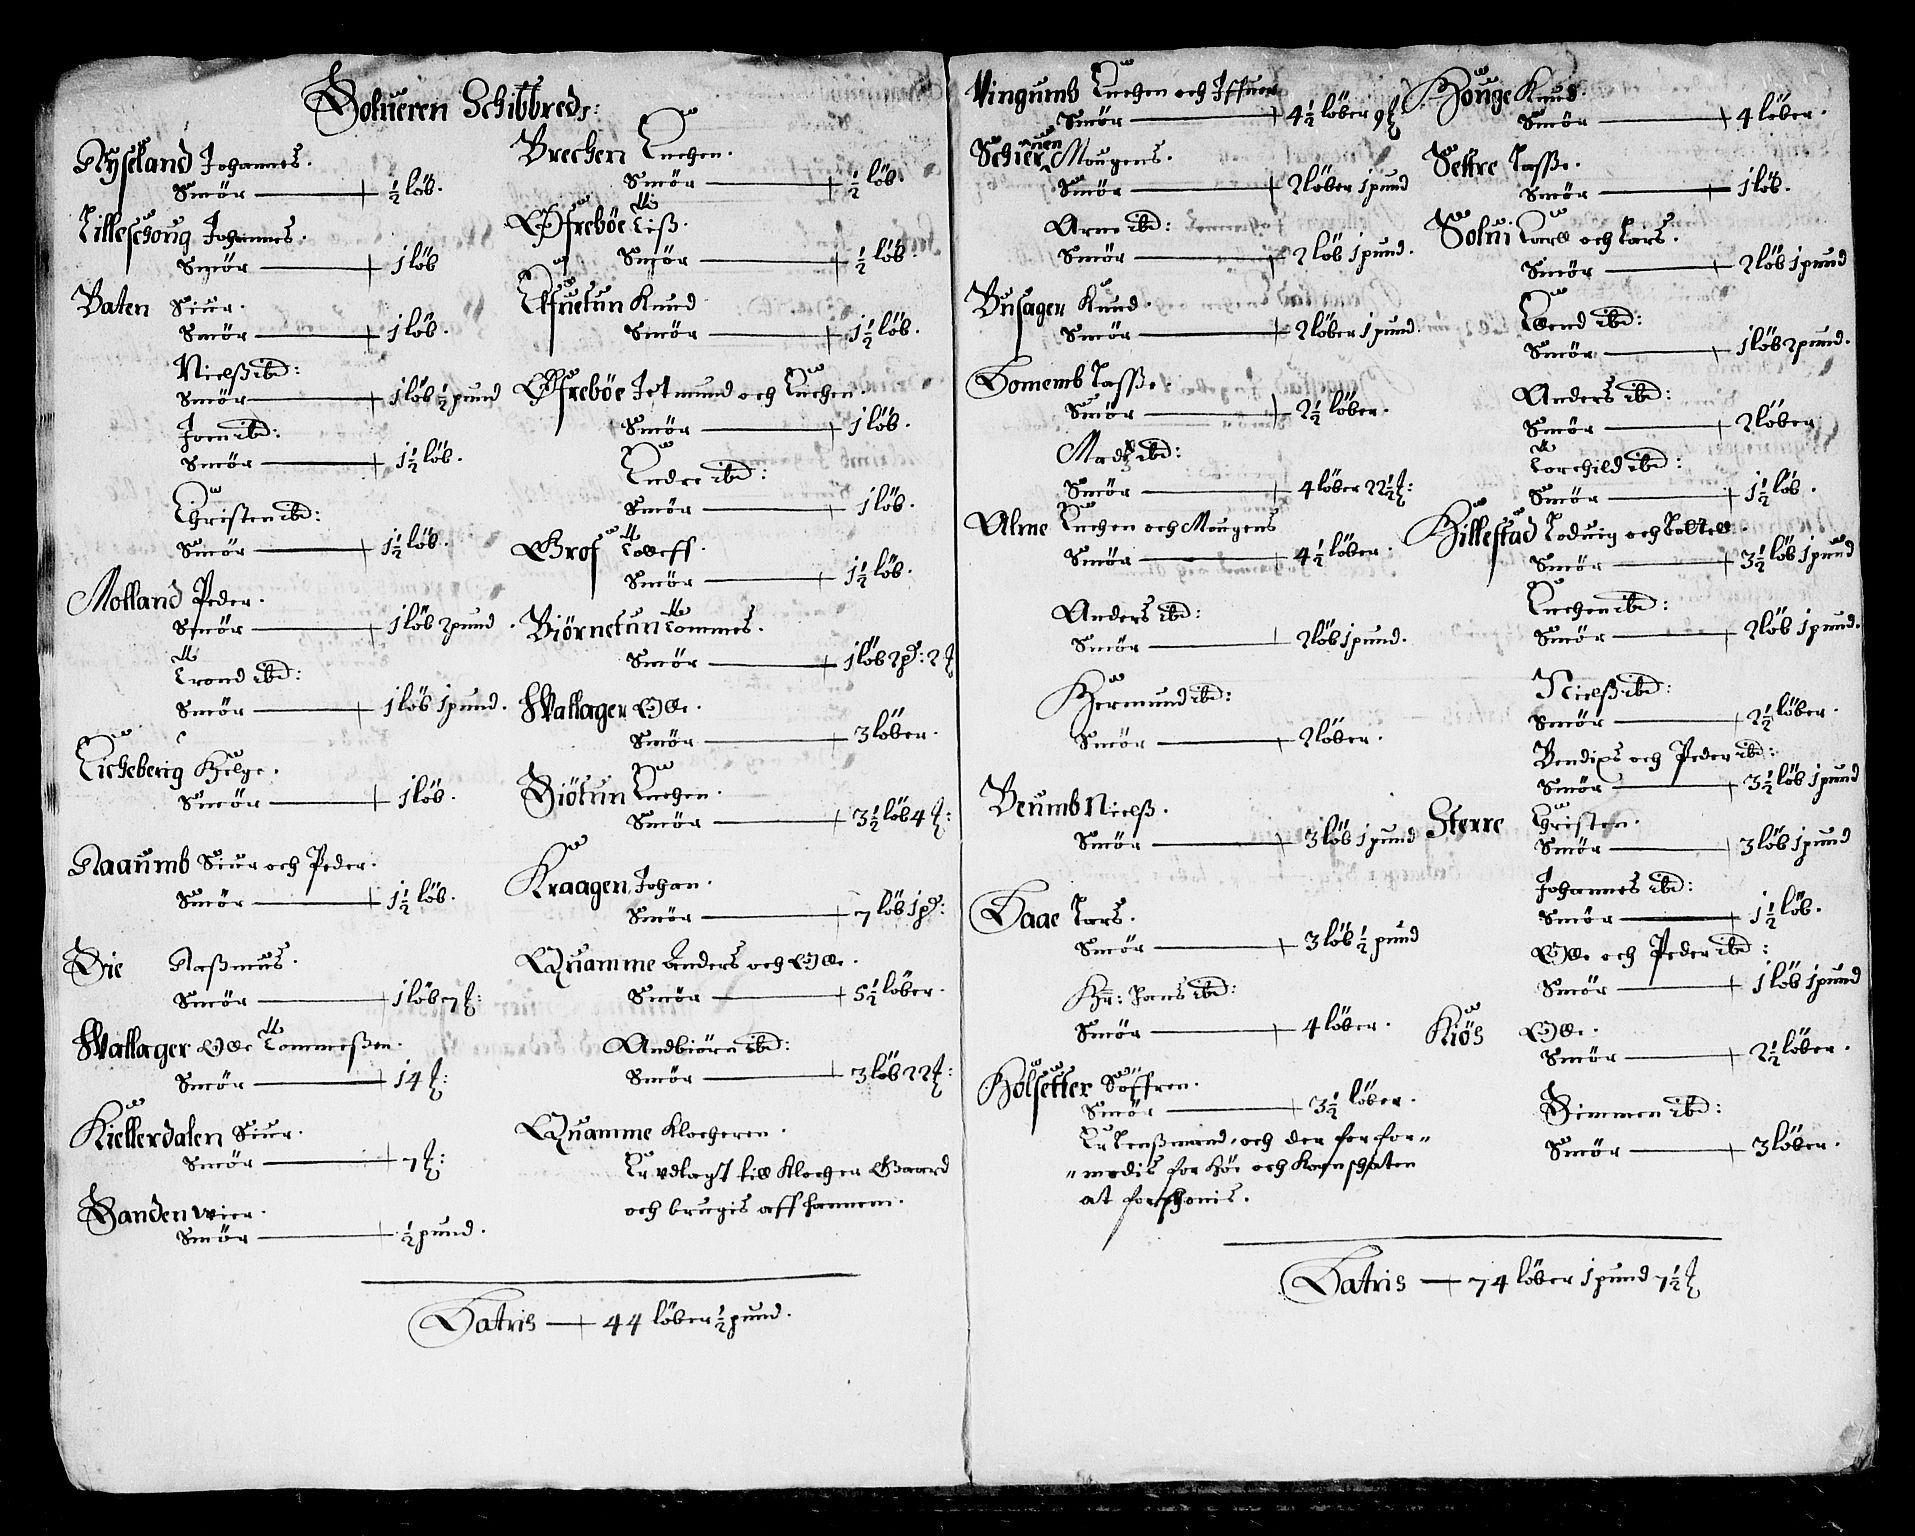 Solueren Schibbreds:
Ryseland Johannes.
Smör — ½ löb.
Lilleschoug Johannes.
Smör — 1 löb
Baten Siur.
Smör — 1 löb.
Nielß ibd:
Smör — 1 löb ½ pund
Joen ibd:
Smör — 1½ löb.
Christen ibd:
Smör — 1½ löb.
Molland Peder.
Smör — 1 löb 2 pund.
Trond ibd:
Smör — 1 löb 1 pund.
Eicheberig Helge.
Smör — 1 löb.
Raaumb Siur och Peder.
Smör — 1½ löb.
Die Raßmus.
Smör — 1 löb 7 ℔:
Hallager Olle Tommeßen.
Smör — 14 ℔:
Kiellerdalen Siur.
Smör — 7 ℔:
Sanden wier.
Smör — ½ pund.
Brechen Enchen.
Smör — ½ löb
Öfreböe Eliß.
Smör — ½ löb.
Elfuetun Knud
Smör — 1½ löb.
Öfreböe Jetmund och Enchen.
Smör — 1 löb.
Endre ibd:
Smör — 1 löb.
Grof Tolleff.
Smör — 1½ löb.
Biörnetun Tommes.
Smör — 1 löb 2 pd: 2 ℔
Hallager Olle.
Smör — 3 löber.
Siötun Enchen.
Smör — 3½ löb 4 ℔:
Kraagen Johan.
Smör — 7 löb 1 pd:
Quamme Anders och Olle.
Smör — 5½ löber.
Andbiörn ibd:
Smör — 3 löb 22 ℔:
Quamme Klocheren.
Er vdlagt till Klocher Gaard
och brugis aff hannem.
Latris — 44 löber ½ pund.
Vingumb Enchen och Iffuer
Smör — 4½ löber 9 ℔
Schieruen Mougens.
Smör — 2 löber 1 pund
Arne ibd:
Smör — 2 löb 1 pund.
Busager Knud.
Smör — 2 löber 1 pund.
Somemb Lasße.
Smör — 2½ löber.
Madtz ibd:
Smör — 4 löber 22½ ℔:
Alme Enchen och Mougens
Smör — 4½ löber.
Anders ibd:
Smör — 2 löb 1 pund.
Hermund ibd:
Smör — 2 löber.
Beumb Nielß.
Smör — 3 löb 1 pund
Daae Lars.
Smör — 3 löb ½ pund
Hr: Jens ibd:
Smör — 4 löber.
Hölsetter Söffren.
Smör — 3½ löber.
Er Lenßmand, och der for for-
-medis for Höe och Kornschaten
at forschonis.
Houge Knud.
Smör — 4 löber.
Settre Lasße.
Smör — 1 löb.
Solui Carll och Lars.
Smör — 2 löb 1 pund
Ellend ibd:
Smör — 1 löb 2 pund.
Anders ibd:
Smör — 2 löber
Torchild ibd:
Smör — 1½ löb.
Hillestad Loduig och Tolleff.
Smör — 3½ löb 1 pund
Enchen ibd:
Smör — 2 löb 1 pund.
Nielß ibd:
Smör — 2½ löber.
Bendix och Peder ibd:
Smör — 3½ löb 1 pund
Sterre Christen.
Smör — 3 löb 1 pund
Johannes ibd:
Smör — 1½ löb.
Olle och Peder ibd:
Smör — 1 löb 1 pund
Kiös Olle.
Smör — 2½ löber.
Simmen ibd:
Smör — 3 löber.
Latris — 74 löber 1 pund 7½ ℔